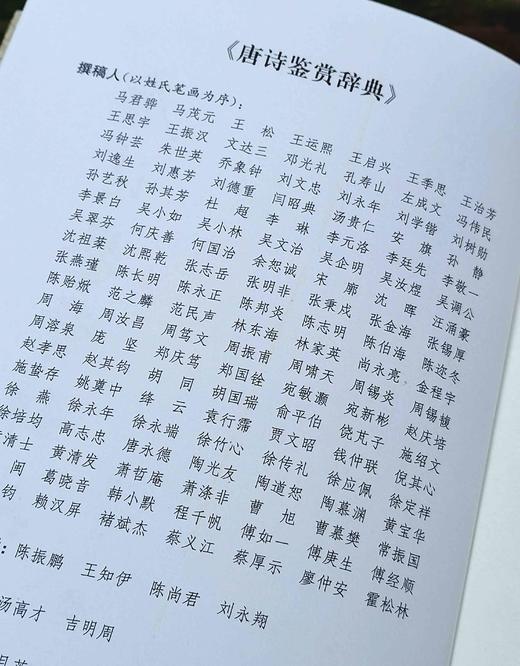 《唐诗鉴赏辞典》
撰稿人(以姓氏笔画为序):
马君骅 马茂元 王 松 王运熙 王启兴 王季思 王治芳
王思宇 王振汉 文达三 邓光礼 孔寿山 左成文 冯伟民
冯钟芸 朱世英 乔象钟 刘文忠 刘永年 刘学锴 刘树勋
刘逸生 刘惠芳 刘德重 闫昭典 汤贵仁 安 旗 孙 静
孙艺秋 孙其芳 杜 超 李 琳 李元洛 李廷先 李敬一
李景白 吴小如 吴小林 吴文治 吴企明 吴汝煜 吴调公
吴翠芬 何庆善 何国治 余恕诚 宋 廓 沈 晖 汪涌豪
沈祖棻 沈熙乾 张志岳 张明非 张秉戍 张金海 张锡厚
张燕瑾 陈长明 陈永正 陈邦炎 陈志明 陈伯海 陈迩冬
陈贻焮 范之麟 范民声 林东海 林家英 尚永亮 金程宇
周 海 周汝昌 周笃文 周振甫 周啸天 周锡炎 周锡䪖
周溶泉 庞 坚 郑庆笃 郑国铨 宛敏灏 宛新彬 赵庆培
赵孝思 赵其钧 胡 同 胡国瑞 俞平伯 饶芃子 施绍文
施蛰存 姚奠中 绛 云 袁行霈 贾文昭 钱仲联 倪其心
徐 燕 徐永年 徐永端 徐竹心 徐传礼 徐应佩 徐定祥
徐培均 高志忠 唐永德 陶光友 陶道恕 陶慕渊 黄宝华
黄清士 黄清发 萧哲庵 萧涤非 曹 旭 曹慕樊 常振国
闽 葛晓音 韩小默 程千帆 傅如一 傅庚生 傅经顺
钧 赖汉屏 褚斌杰 蔡义江 蔡厚示 廖仲安 霍松林
: 陈振鹏 王知伊 陈尚君 刘永翔
汤高才 吉明周